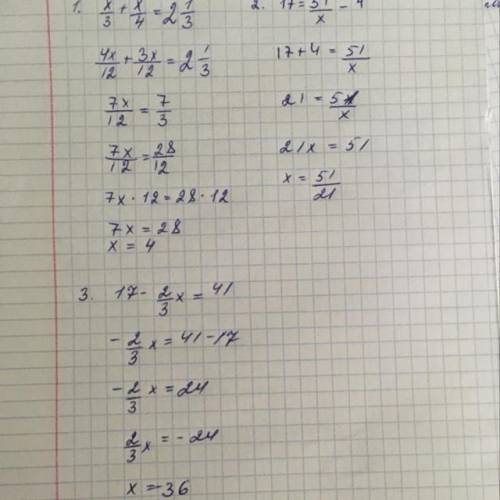 1. x/3 + x/4 = 2 1/3
4x/12 + 3x/12 = 2 1/3
7x/12 = 7/3
7x/12 = 28/12
7x · 12 = 28 · 12
7x = 28
x = 4
2. 17 = 51/x - 4
17 + 4 = 51/x
21 = 51/x
21x = 51
x = 51/21
3. 17 - 2/3 x = 41
- 2/3 x = 41 - 17
- 2/3 x = 24
2/3 x = - 24
x = -36